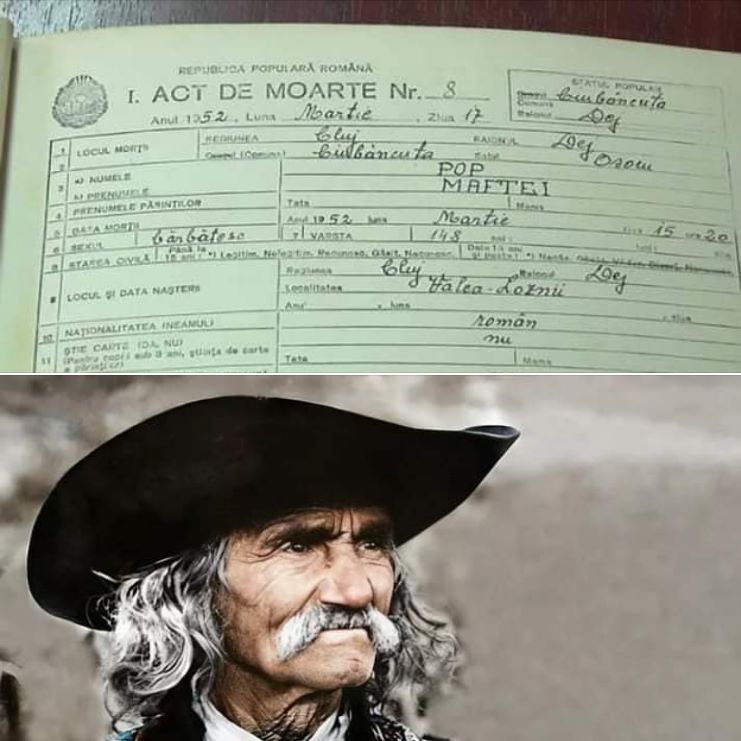 REPUBLICA POPULARĂ ROMÂNĂ
I. ACT DE MOARTE Nr. 8
Anul 1952, Luna Martie, Ziua 17
STATUL POPULAR
Comuna Ciubăncuța
Raionul Dej
1 LOCUL MORȚII REGIUNEA Cluj RAIONUL Dej
(Comuna) Ciubăncuța Satul
2
3 a) NUMELE POP
b) PRENUMELE MAFTEI
4 PRENUMELE PĂRINȚILOR Tata Mama
5 DATA MORȚII Anul 1952 luna Martie ziua 15 ora 20
6 SEXUL bărbătesc 7 VARSTA 148 ani
8 STAREA CIVILĂ Până la 15 ani *) Legitim, Nelegitim, Recunosc, Găsit, Necunosc.
9 LOCUL ȘI DATA NAȘTERII Regiunea Cluj Raionul Dej
Localitatea Valea-Loznii
Anul luna ziua
10 NAȚIONALITATEA (NEAMUL) român
11 ȘTIE CARTE (DA, NU) nu
(Pentru copii sub 8 ani, știința de carte a părinților) Tata Mama